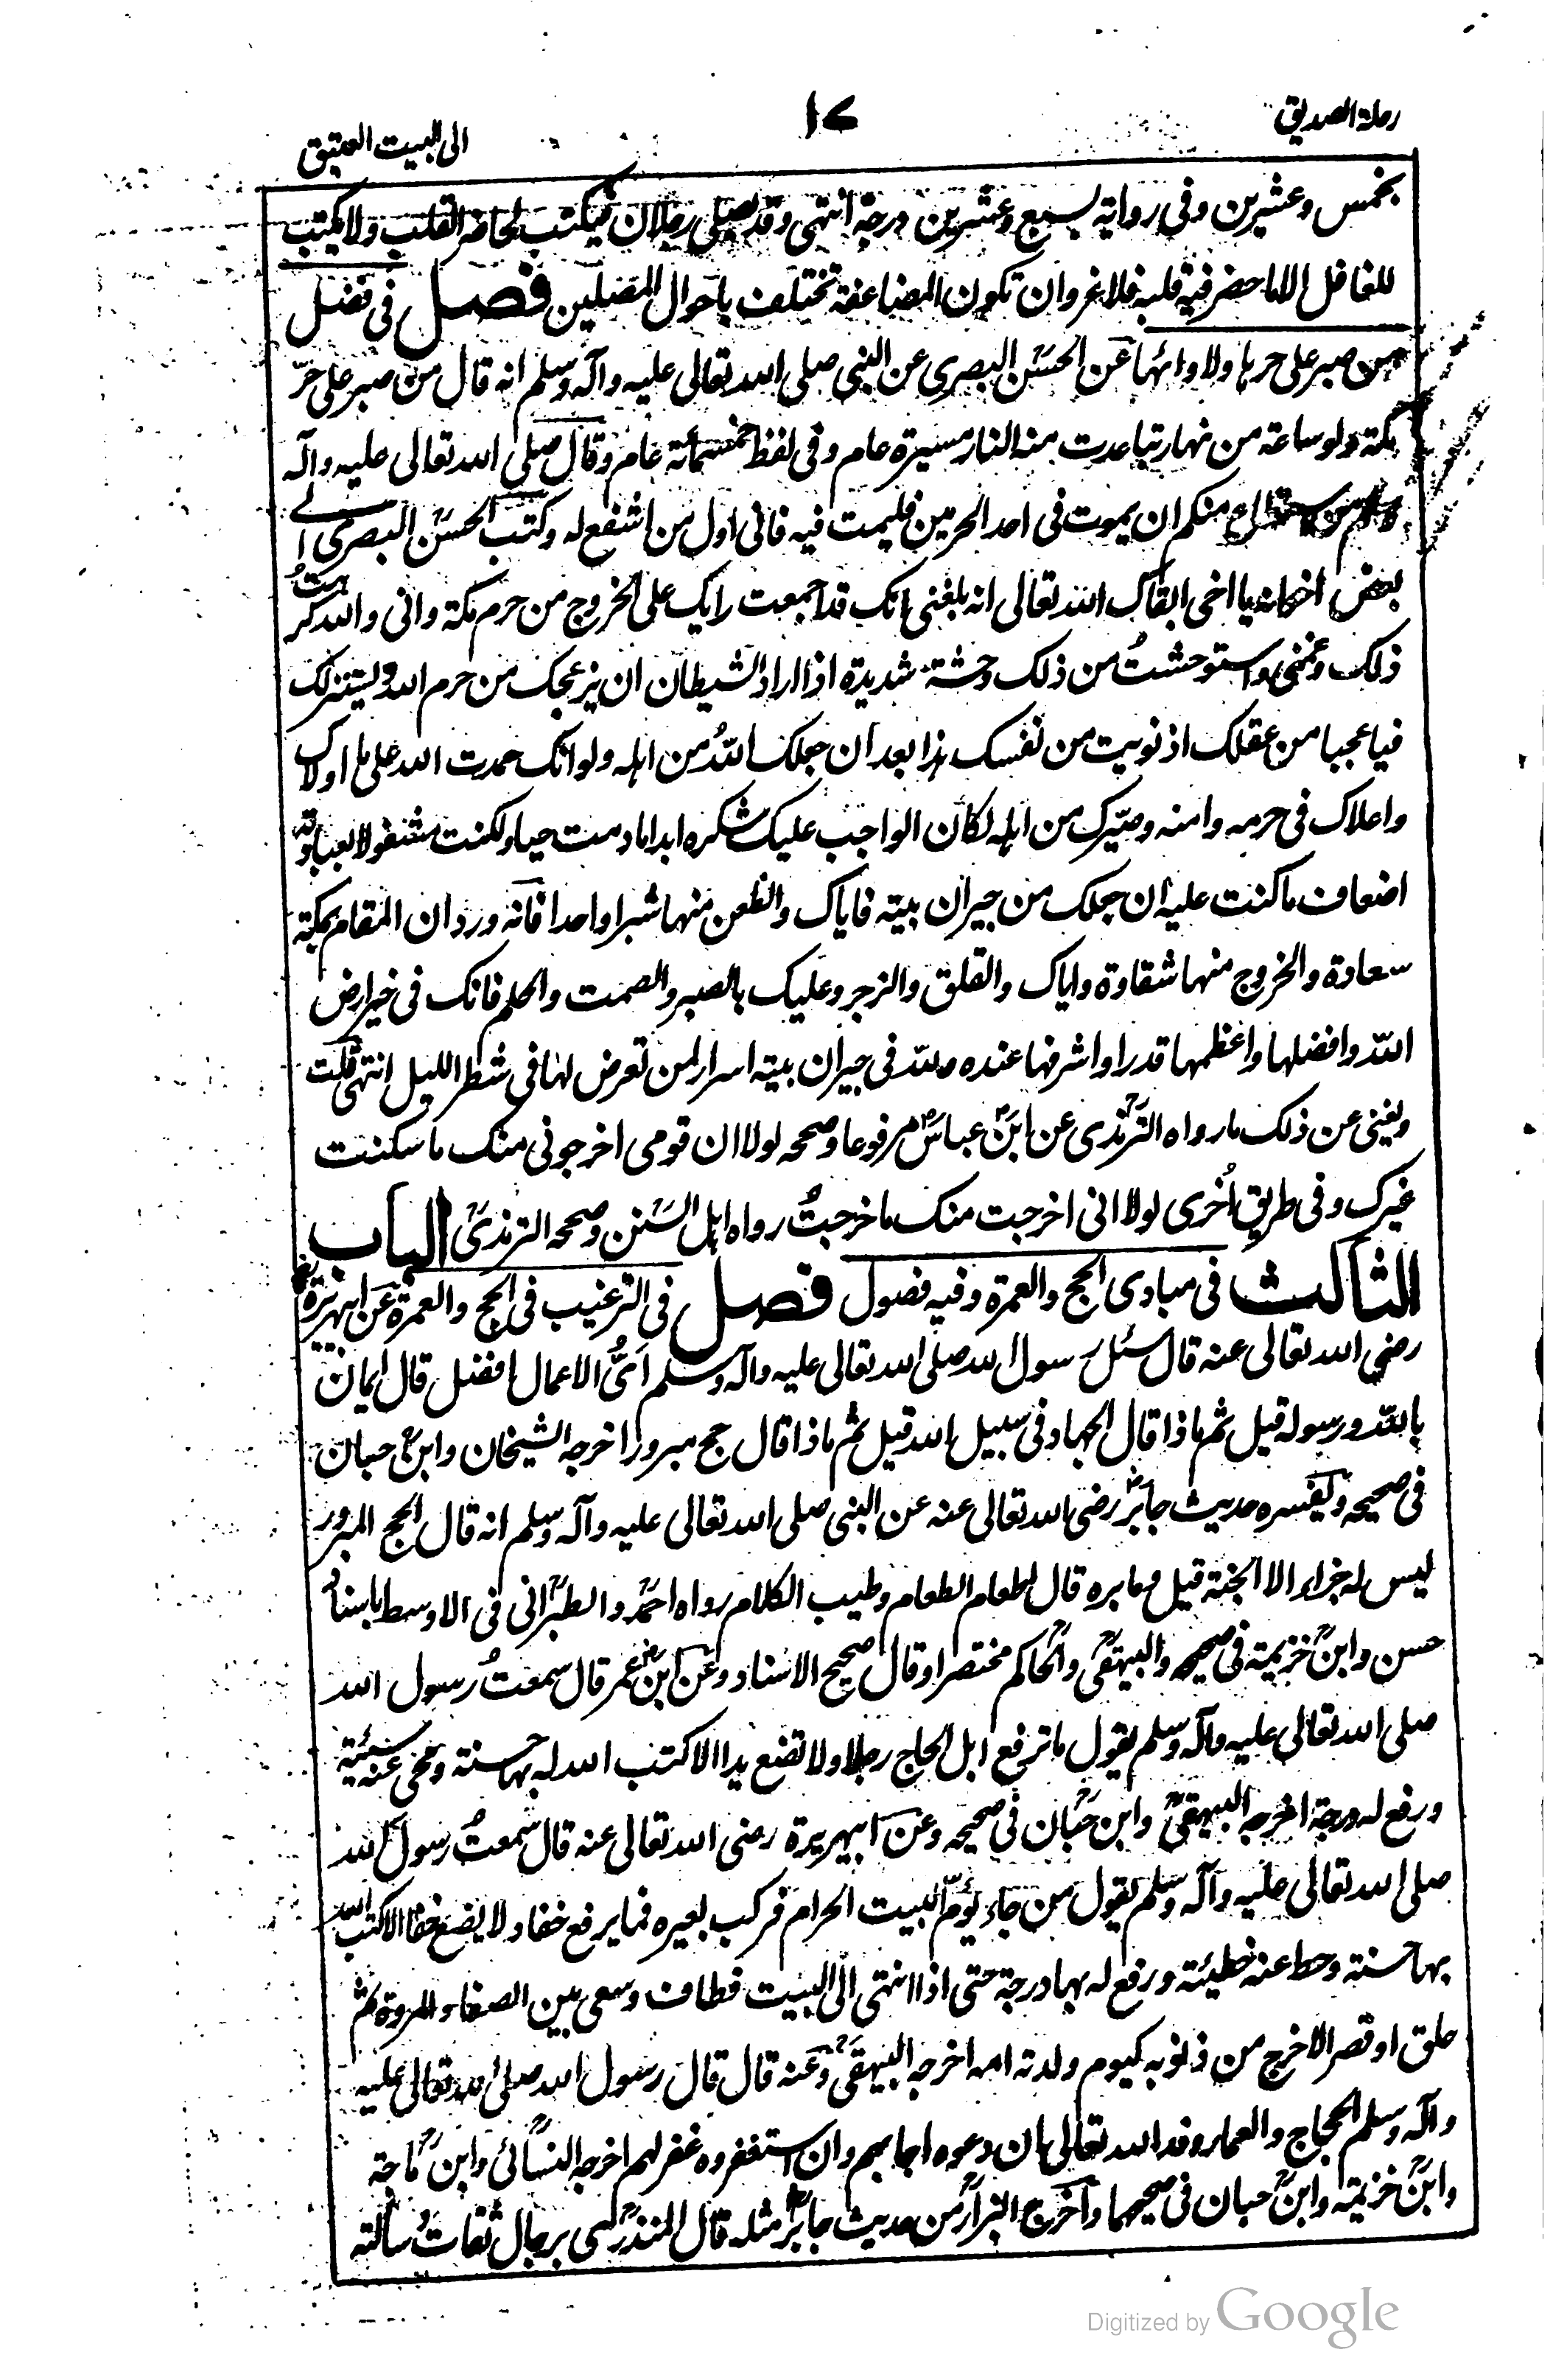 رحلة الصديق
١٧
الى البيت العتيق
بخمس وعشرين وفى رواية بسبع وعشرين درجة انتهى وقد يصلى رجلان فيكتب لحاضر القلب ولا يكتب
للغافل الا ما حضر فيه قلبه فلا غرو ان تكون المضاعفة تختلف باحوال المصلين فصل فى فضل
من صبر على حرها ولاوائها عن الحسن البصرى عن النبى صلى الله تعالى عليه وآله وسلم انه قال من صبر على حرّ
مكة ولو ساعة من نهار تباعدت منه النار مسيرة عام وفى لفظ خمسمائة عام وقال صلى الله تعالى عليه وآله
وسلم من استطاع منكم ان يموت فى احد الحرمين فليمت فيه فانى اول من اشفع له وكتب الحسن البصرى الے
بعض اخوانه يا اخى ابقاك الله تعالى انه بلغنى انك قد اجمعت رايك على الخروج من حرم مكة وانى والله كرهتُ
ذلك وغمنى واستوحشتُ من ذلك وحشة شديدة اذا اراد الشيطان ان يزعجك من حرم الله ويستنزلك
فيا عجبا من عقلك اذ نويت من نفسك هذا بعد ان جعلك اللهُ من اهله ولو انك حمدت الله على ما اولاك
واعلاك فى حرمه وامنه وصيّرك من اهله لكان الواجب عليك شكره ابدا ما دمت حيا ولكنت مشغولا بعبادته
اضعاف ما كنت عليه ان جعلك من جيران بيته فاياك والظعن منها شبرا واحدا فانه ورد ان المقام بمكة
سعادة والخروج منها شقاوة واياك والقلق والزجر وعليك بالصبر والصمت والحلم فانك فى خير ارض
الله وافضلها واعظمها قدرا واشرفها عنده ولله فى جيران بيته اسرار لمن تعرض لها فى شطر الليل انتهى قلت
ويغنى عن ذلك ما رواه الترمذى عن ابن عباس مرفوعا وصححه لولا ان قومى اخرجونى منك ما سكنت
غيرك وفى طريق اُخرى لولا انى اخرجت منك ما خرجتُ رواه اهل السنن وصححه الترمذى الباب
الثالث فى مبادى الحج والعمرة وفيه فصول فصل فى الترغيب فى الحج والعمرة عن ابيهريرة
رضى الله تعالى عنه قال سئل رسول الله صلى الله تعالى عليه وآله وسلم اَىُّ الاعمال افضل قال ايمان
بالله ورسوله قيل ثم ماذا قال الجهاد فى سبيل الله قيل ثم ماذا قال حج مبرور اخرجه الشيخان وابن حبان
فى صحيحه ويفسره حديث جابر رضى الله تعالى عنه عن النبى صلى الله تعالى عليه وآله وسلم انه قال الحج المبرور
ليس له جزاء الا الجنة قيل وما بره قال اطعام الطعام وطيب الكلام رواه احمد والطبرانى فى الاوسط باسناد
حسن وابن خزيمة فى صحيحه والبيهقى والحاكم مختصرا وقال صحيح الاسناد وعن ابن عمر قال سمعتُ رسول الله
صلى الله تعالى عليه وآله وسلم يقول ما ترفع ابل الحاج رجلا ولا تضع يدا الا كتب الله له بها حسنة ومحى عنه سيئة
ورفع له درجة اخرجه البيهقى وابن حبان فى صحيحه وعن ابيهريرة رضى الله تعالى عنه قال سمعتُ رسول الله
صلى الله تعالى عليه وآله وسلم يقول من جاء يؤمّ البيت الحرام فركب بعيره فما يرفع خفا ولا يضع خفا الا كتب الله
بها حسنة وحط عنه خطيئة ورفع له بها درجة حتى اذا انتهى الى البيت فطاف وسعى بين الصفا والمروة ثم
حلق او قصر الا خرج من ذنوبه كيوم ولدته امه اخرجه البيهقى وعنه قال قال رسول الله صلى الله تعالى عليه
وآله وسلم الحجاج والعمار وفد الله تعالى ان دعوه اجابهم وان استغفروه غفر لهم اخرجه النسائى وابن ماجة
وابن خزيمة وابن حبان فى صحيحهما واخرج البزار من حديث جابر مثله قال المنذرى برجال ثقات وسالته
Digitized by Google